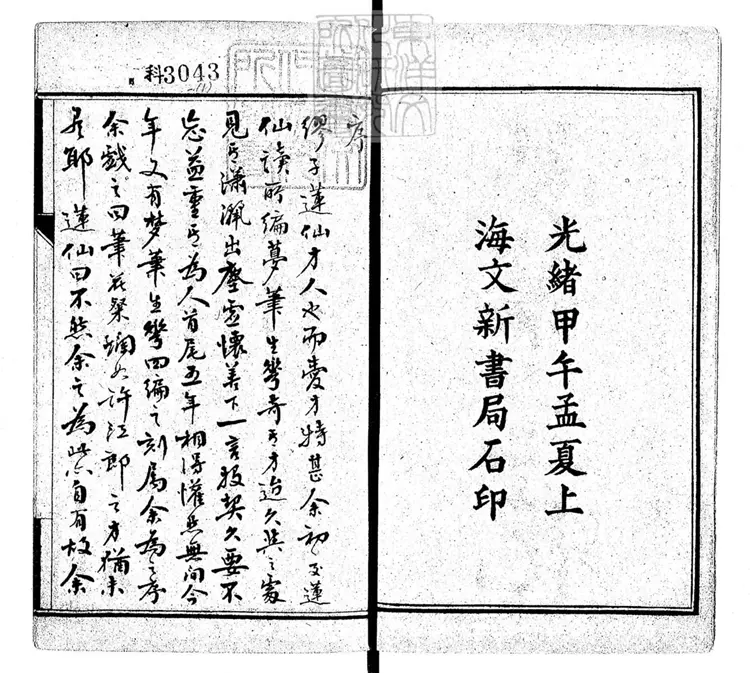 科3043
(1)
光緒甲午孟夏上
海文新書局石印
序
繆子蓮仙才人也而愛才特甚余初蓮
仙讀所編夢筆生花奇其才迨久與之處
見其瀟灑出塵虛懷善下一言投契久要不
忘益重其為人首尾五年相得懽然無間今
年又有夢筆生花四編之刻屬余為之序
余戲之曰筆花粲爛如許江郎之才猶未
尽耶蓮仙曰不然余之為此亦自有故余